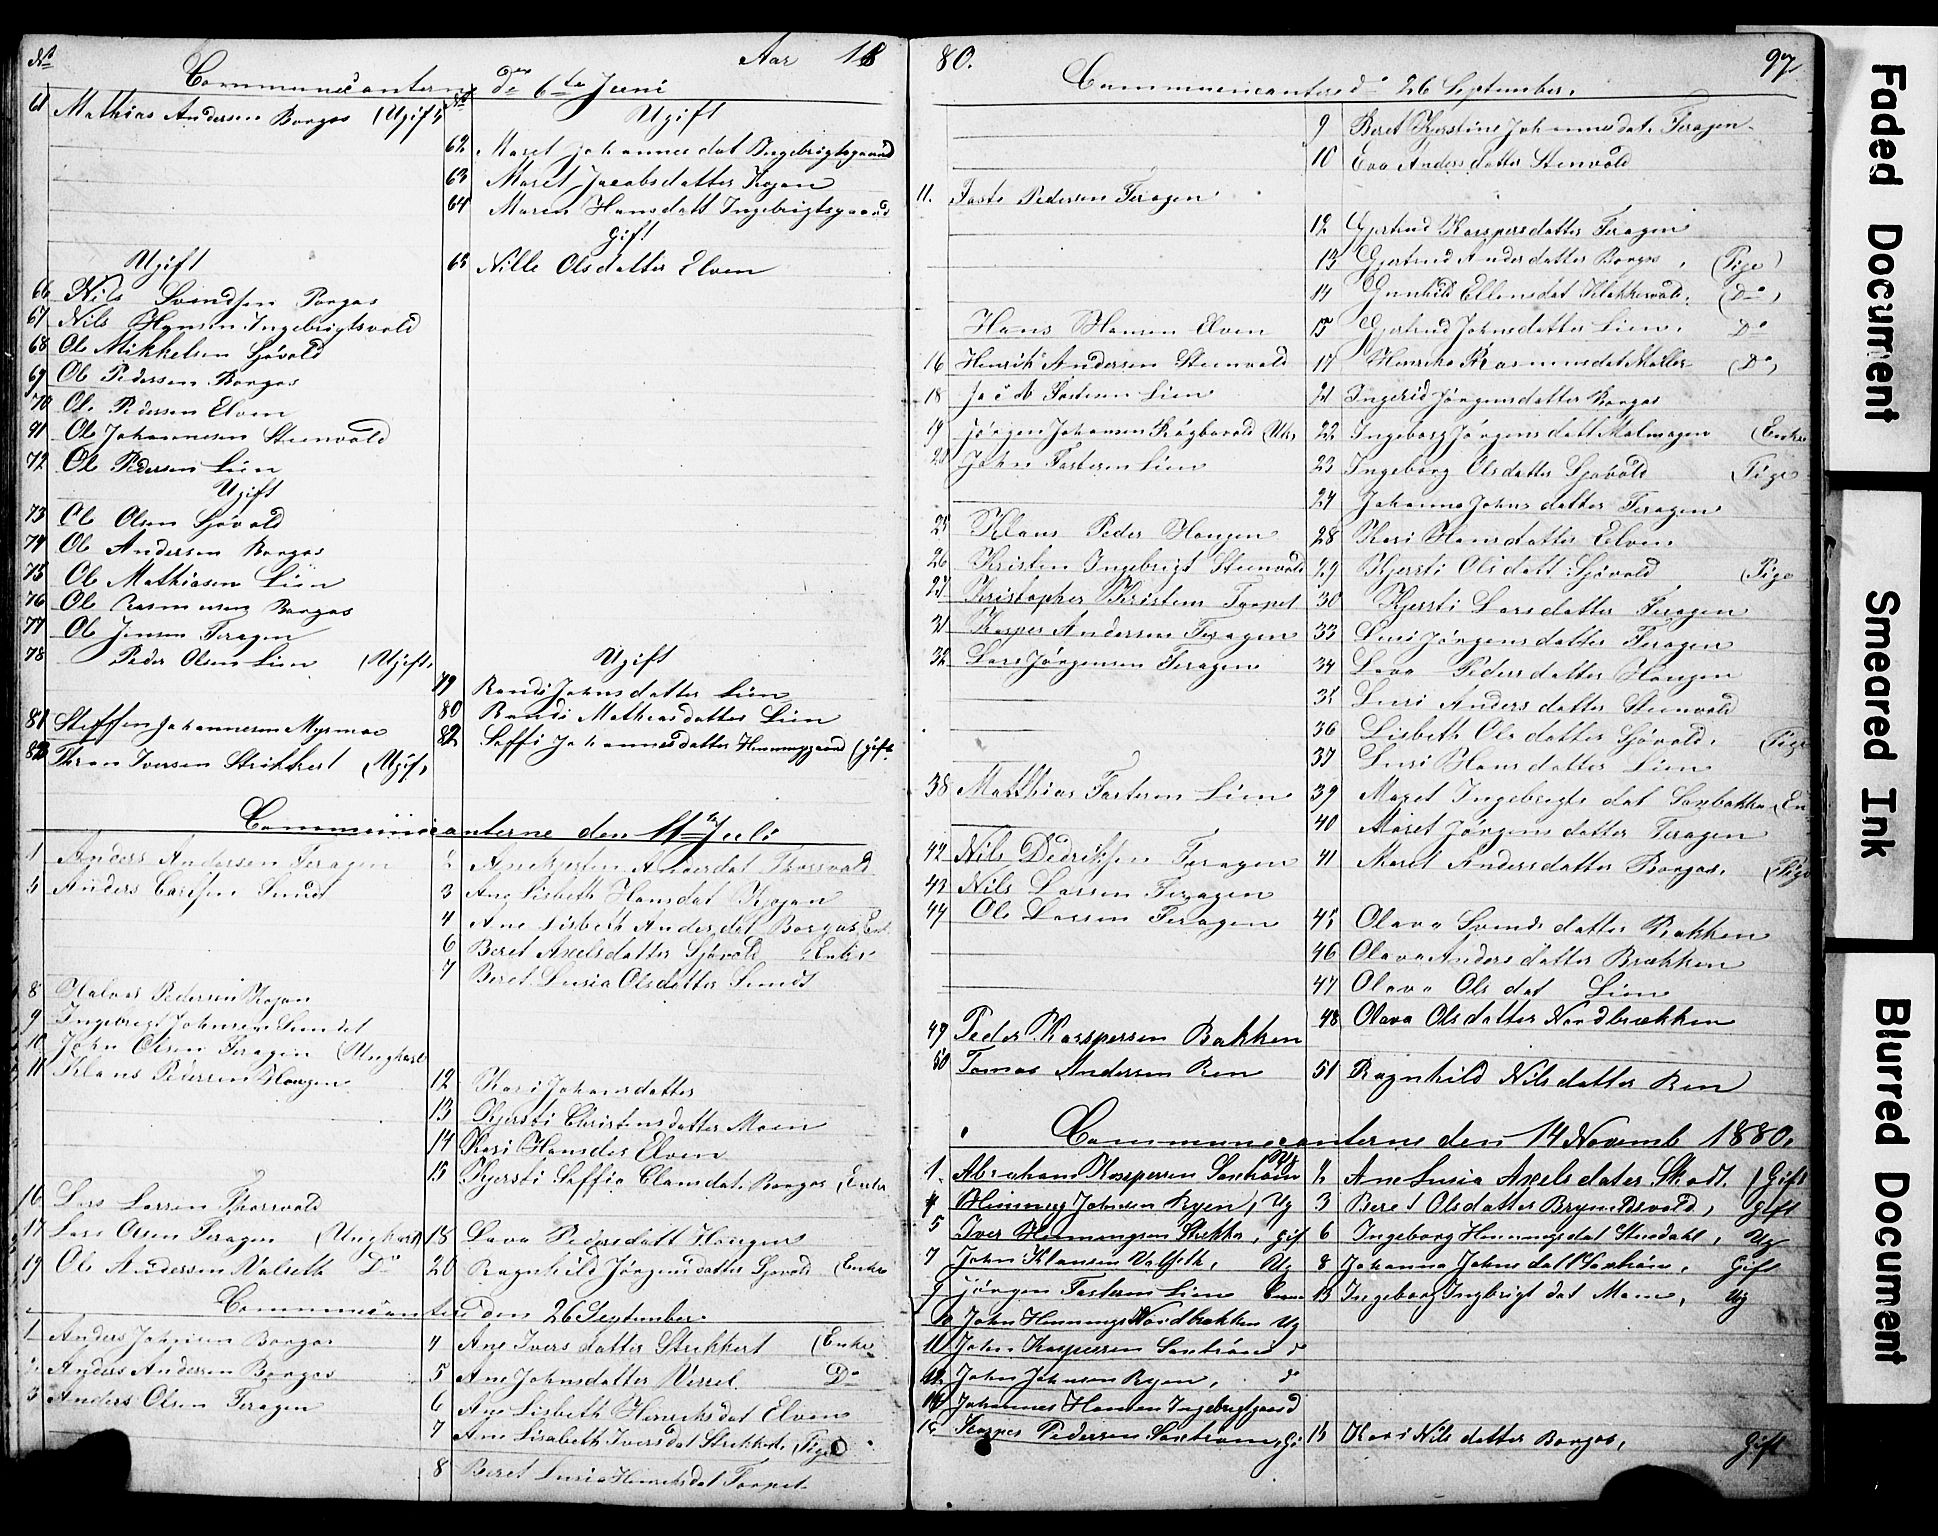 No Aar 18
Communicanterne de 6te Juni
61 Mathias Andersen Borgos (Ugift)
Ugift
62 Maret Johannesdat Ingebrigtsgaard
63 Maret Jacobsdatter Kojan
64 Maren Hansdatt Ingebrigtsgaard
Gift
65 Nille Olsdatter Elven
Ugift
66 Nils Svendsen Borgos
67 Nils Hansen Ingebrigtsvold
68 Ole Mikkelsen Sjövold
69 Ole Pedersen Borgos
70 Ole Pedersen Elven
71 Ole Johannesen Stenvold
72 Ole Pedersen Lien
Ugift
73 Ole Olsen Sjövold
74 Ole Andersen Borgos
75 Ole Mathiasen Lien
76 Ole Rasmusen Borgos
77 Ole Jensen Feragen
78 Peder Olsen Lien (Ugift)
Ugift
79 Randi Johnsdatter Lien
80 Randi Mathiasdatter Lien
81 Steffen Johannesen Myrmoe
82 Soffi Johannesdatter Henninggaard (gift
83 Thron Iversen Strikkert (Ugift)
Communicanterne den 11te Juli
1 Anders Andersen Feragen
2 Ane Kjersten Andersdat Thorsvold
5 Anders Carlsen Sundt
3 Ane Lisbeth Hansdat Kojan
4 Ane Lisbeth Andersdat Borgos, Enk.
6 Beret Axelsdatter Sjövold Enke
7 Beret Lusia Olsdatter Sundt
8 Halvor Pedersen Kojan
9 Ingebrigt Johnsen Sundet
10 John Olsen Feragen (Ungkarl
11 Klaus Pedersen Haugen
12 Kari Johansdatter
13 Kjersti Christensdatter Moen
14 Kari Hansdat Elven
15 Kjersti Soffia Clausdat. Borgos (Enke
16 Lars Larsen Thorsvold
17 Lars Olsen Feragen (Ungkarl)
18 Lava Pedersdatt Haugen
19 Ole Andersen Valseth Do
20 Ragnhild Jörgensdatter Sjövold (Enke
Communicanterne den 26 September.
1 Anders Johnsen Borgos
4 Ane Iversdatter Strikkert (Enke
2 Anders Andersen Borgos
5 Ane Johnsdatter Vessel. Do
3 Anders Olsen Feragen
6 Ane Lisbeth Henriksdat Elven
7 Ane Lisabeth Iversdat Strikkert, (Pige
8 Beret Lusia Henriksdat Torpet
80. 97
Communicantere d 26 September.
9 Beret Kjerstine Johannesdat. Feragen
10 Eva Andersdatter Stenvold
11. Faste Pedersen Feragen
12 Gjertrud Kasspersdatter Feragen
13 Gjertrud Andersdatter Borgos, (Pige)
14 Gunhild Ellensdat Klokkervold. (Do)
Hans Hansen Elven
15 Gjertrud Johnsdatter Lien. Do
16 Henrik Andersen Stenvold
17 Henrike Rasmusdat Möller (Do)
18 Jacob Fastesen Lien
21 Ingerid Jörgensdatter Borgos
19 Jörgen Johansen Krögbavold (Uk)
22 Ingeborg Jörgensdatt Malmagen (Enke
20 John Fastesen Lien
23 Ingeborg Olsdatter Sjövold (Pige
24 Johanna Johnsdatter Feragen
25 Klaus Peder Haugen
28 Kari Hansdatter Elven
26 Kristen Ingebrigt Stenvold
29 Kjersti Olsdatt. Sjövold (Pige
27 Kristopher Kristens Torpet
30 Kjersti Larsdatter Feragen
31 Kasper Andersen Feragen
33 Lusi Jörgensdatter Feragen
32 Lars Jörgensen Feragen
34 Lava Pedersdatter Haugen
35 Lusi Andersdatter Stenvold
36 Lisbeth Olsdatter Sjövold. (Pige
37 Lusi Hansdatter Lien
38 Matthias Fastesen Lien
39 Maret Ingebrigts dat Sonbakken (En
40 Maret Jörgensdatter Feragen
42 Nils Didriksen Feragen
41 Maret Andersdatter Borgos. (Pige
43 Nils Larsen Feragen
44 Ole Larsen Feragen
45 Olava Svendsdatter Bakken
46 Olava Andersdatter Brækken
47 Olava Olsdat Lien
48 Olava Olsdatter Nordbrækken
49 Peder Kasspersen Bakken
50 Tomas Andersen Ren
51 Ragnhild Nilsdatter Ren
Communicanterne den 14 Novemb 1880.
1. Abraham Kasspersen Sæxhaim Ug
2 Ane Lusia Axelsdater Skott. (Gift
4 Henning Johnsen Ryen, Ug
3 Beret Olsdatter Brynildsvold, gift
5 Iver Henningsen Bækka, gift
6 Ingeborg Henningsdat Stensdahl, Ug
7 John Klausen Valseth, Ug
8 Johanna Johnsdat Sæxhaim, Gift
9 Jörgen Fastesen Lien
13 Ingeborg Ingbrigtdat Moen, Ug
10 John Hennings Nordbrækken Ug
11 John Kaspersen Sæxhaim d
12 John Johnsen Ryen, do
14 Johannes Hansen Ingebrigtgaard
16 Kasper Pedersen Sæxhaim, Gi
15 Kari Nilsdatter Borgos, Gift
Faded Document
Smeared Ink
Blurred Document